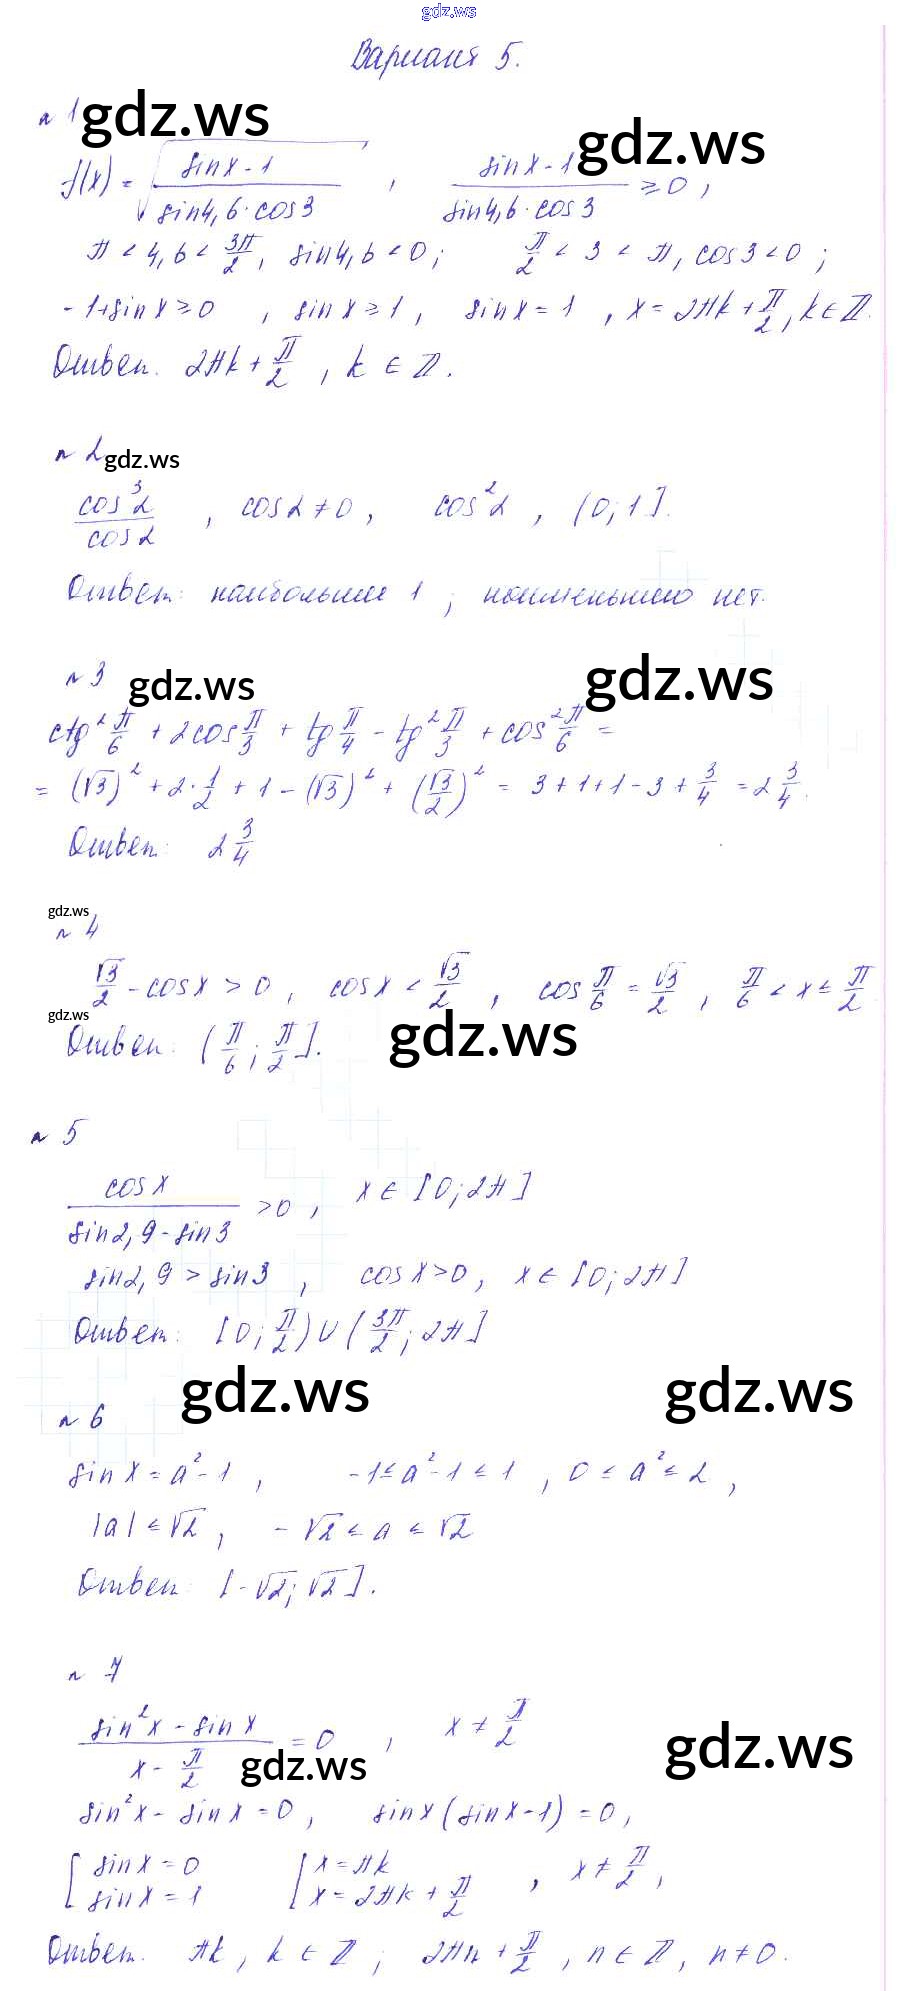 gdz.ws
Вариант 5.
№ 1
gdz.ws
gdz.ws
f(x) = √((sin x - 1)/(sin 4,6 · cos 3)) , (sin x - 1)/(sin 4,6 · cos 3) ≥ 0 ,
π < 4,6 < 3π/2, sin 4,6 < 0; π/2 < 3 < π, cos 3 < 0 ;
-1+sin x ≥ 0 , sin x ≥ 1 , sin x = 1 , x = 2πk + π/2, k ∈ Z.
Ответ. 2πk + π/2 , k ∈ Z.
№ 2
gdz.ws
cos³α/cos α , cos α ≠ 0 , cos²α , (0; 1].
Ответ: наибольшее 1 ; наименьшего нет.
№ 3
gdz.ws
gdz.ws
ctg² π/6 + 2cos π/3 + tg π/4 - tg² π/3 + cos² π/6 =
= (√3)² + 2·1/2 + 1 - (√3)² + (√3/2)² = 3+1+1-3+3/4 = 2 3/4.
Ответ: 2 3/4
gdz.ws
№ 4
√3/2 - cos x > 0 , cos x < √3/2 , cos π/6 = √3/2 , π/6 < x ≤ π/2.
gdz.ws
gdz.ws
Ответ: (π/6; π/2].
№ 5
cos x/(sin 2,9 - sin 3) > 0 , x ∈ [0; 2π]
sin 2,9 > sin 3 , cos x > 0 , x ∈ [0; 2π]
Ответ: [0; π/2) ∪ (3π/2; 2π]
gdz.ws
gdz.ws
№ 6
sin x = a² - 1 , -1 ≤ a² - 1 ≤ 1 , 0 ≤ a² ≤ 2 ,
|a| ≤ √2 , -√2 ≤ a ≤ √2
Ответ: [-√2; √2].
№ 7
(sin²x - sin x)/(x - π/2) = 0 , x ≠ π/2
gdz.ws
gdz.ws
sin²x - sin x = 0 , sin x (sin x - 1) = 0 ,
[ sin x = 0 [ x = πk
[ sin x = 1 [ x = 2πk + π/2 , x ≠ π/2 ,
Ответ. πk , k ∈ Z ; 2πn + π/2 , n ∈ Z , n ≠ 0.